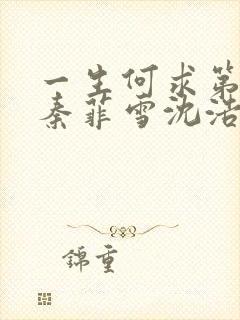 一生何求第
秦菲雪沈浩
錦重